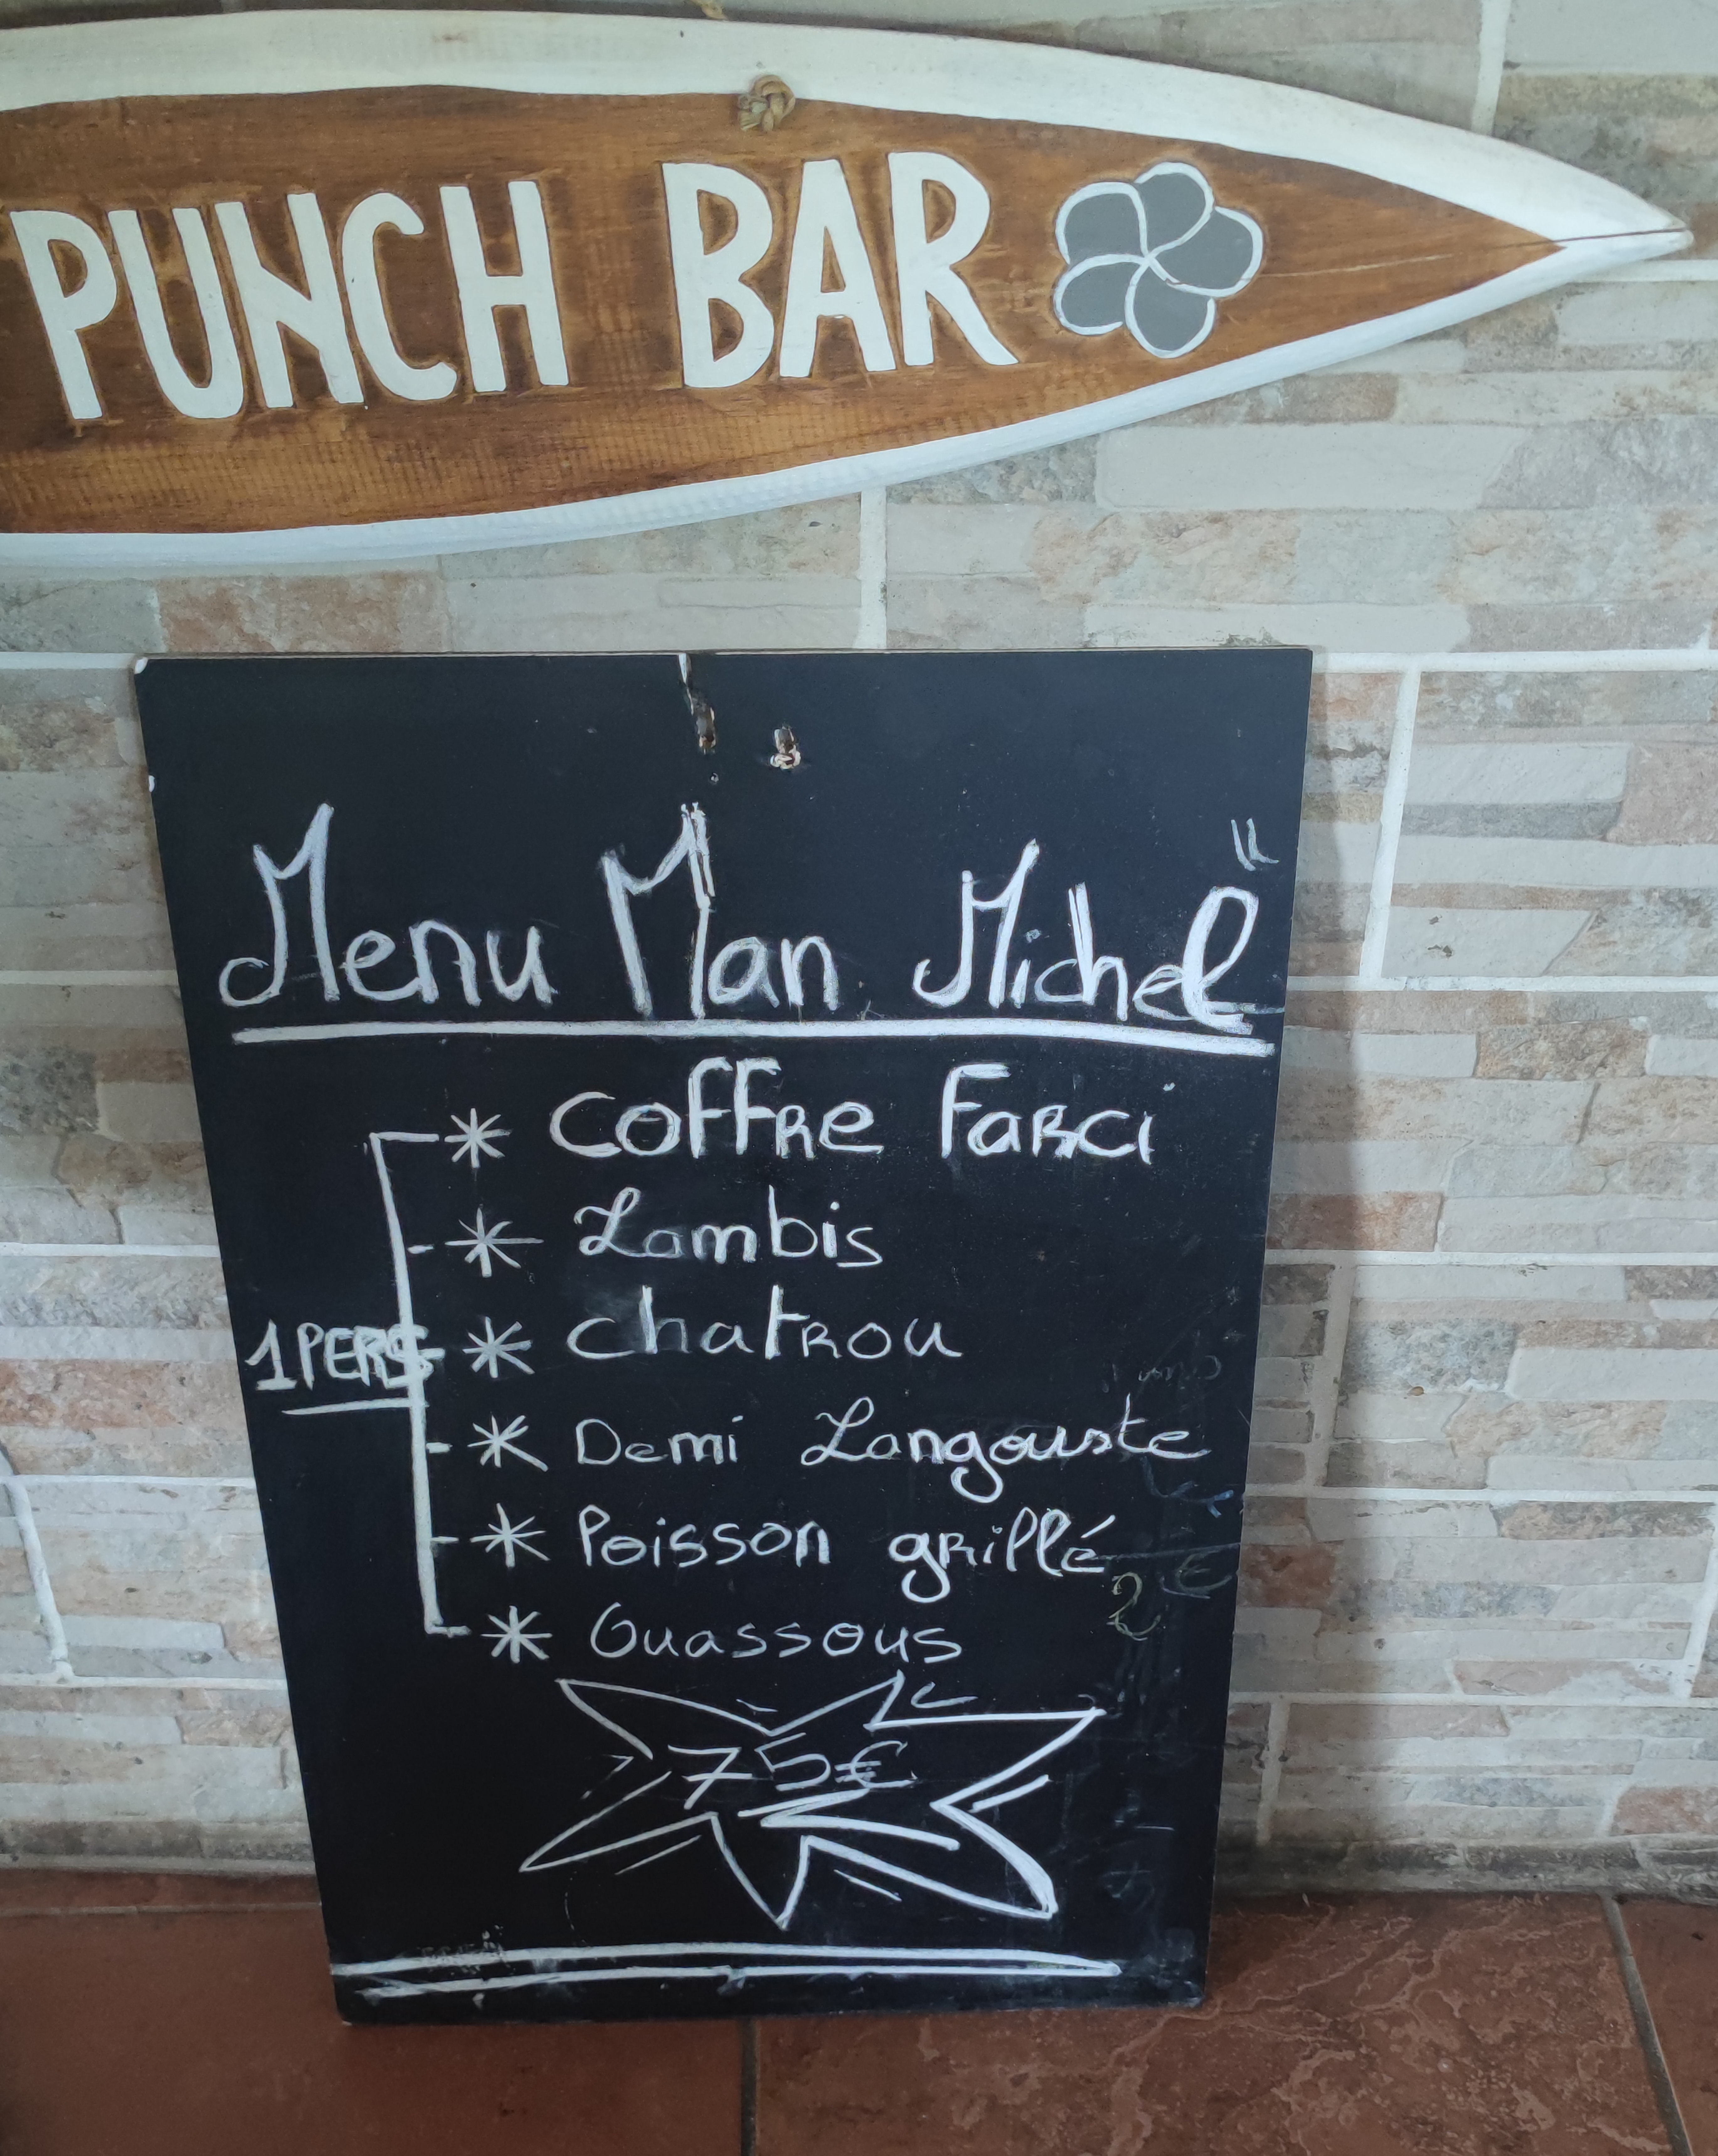 PUNCH BAR
Menu Man Michel"
* Coffre Farci
* Lambis
1 PERS * Chatrou
* Demi Langouste
* Poisson grillé
* Ouassous
75€